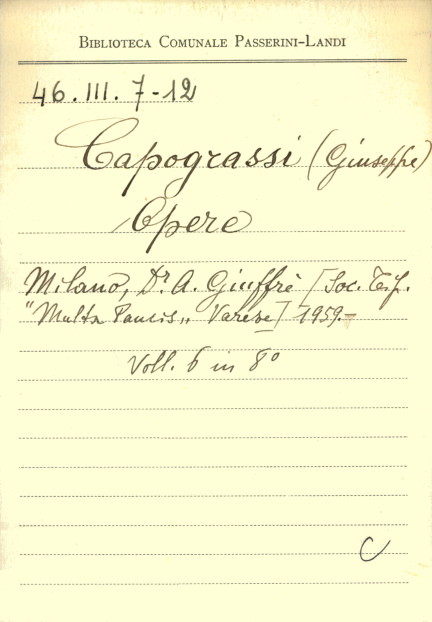 BIBLIOTECA COMUNALE PASSERINI-LANDI
46.III.7-12
Capograssi (Giuseppe)
Opere
Milano, Dr A. Giuffrè [Soc. Tip.
"Multa Paucis" Varese] 1959.-
Voll. 6 in 8°
C